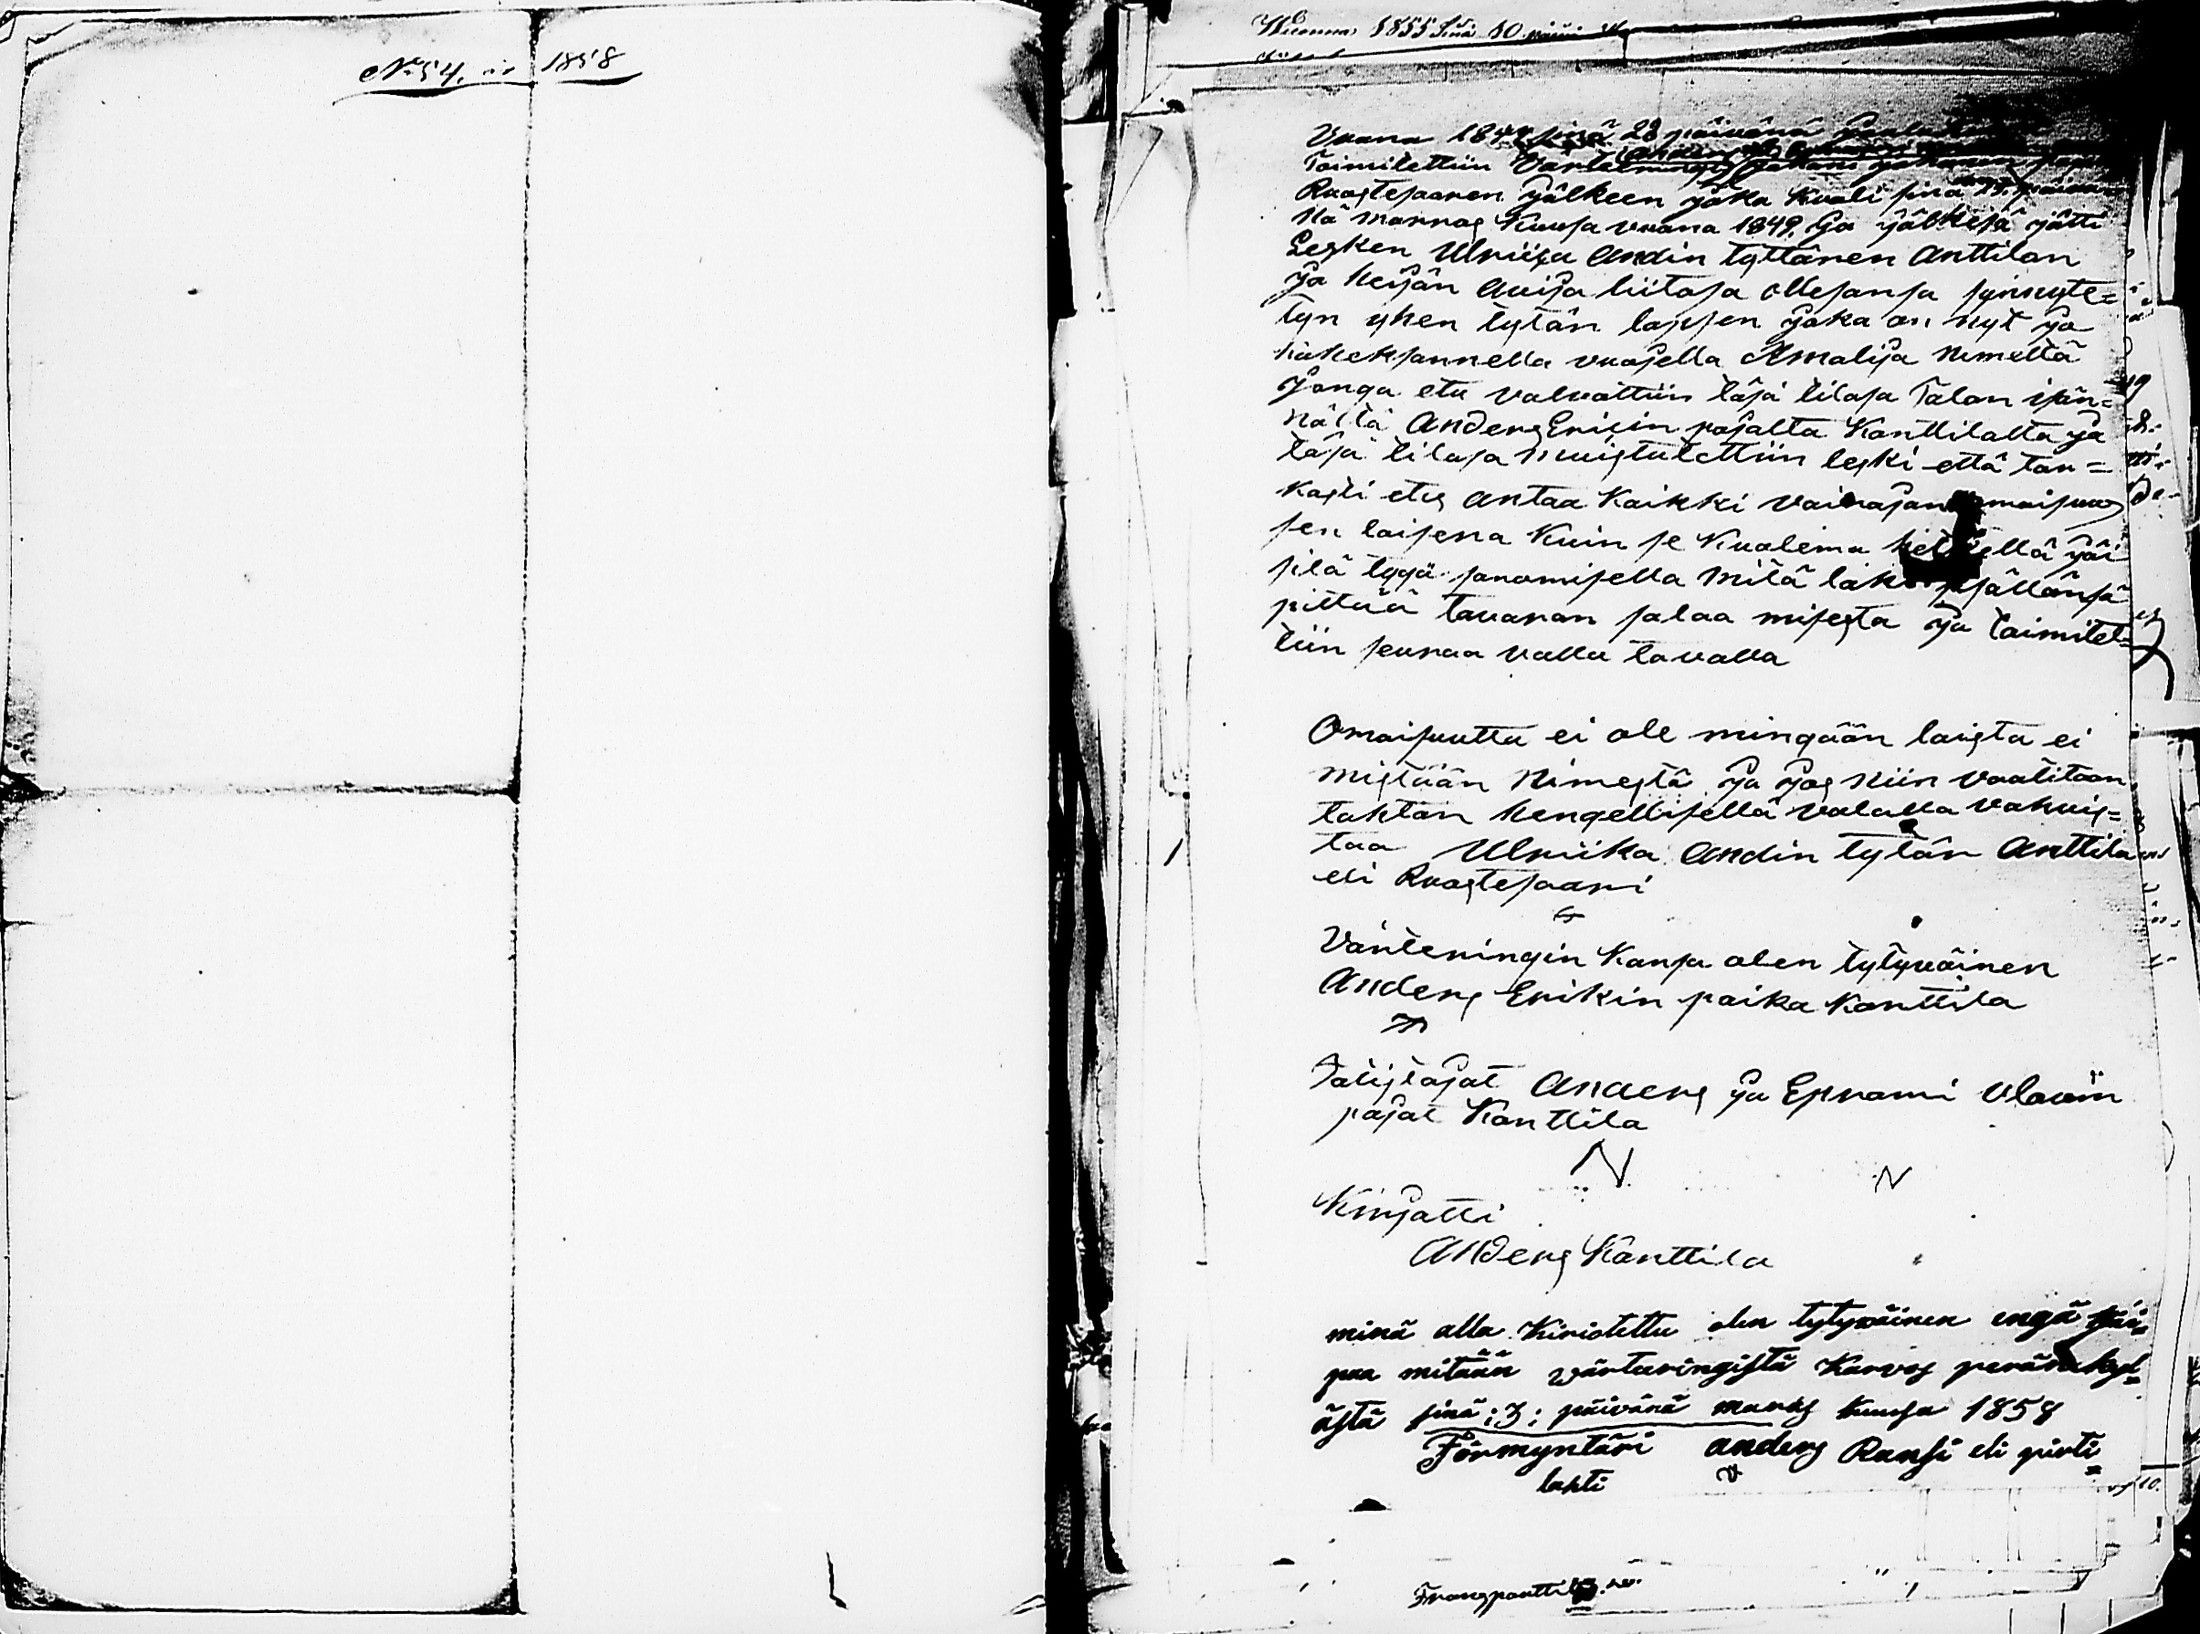 No 54. 1858
Wuonna 1855 Sinä 10 päivä
Vuona 184 sinä 28 päivänä
Toimitettiin Varteeringi
Ruostesaaren jälkeen joka kuoli sinä 15. päivä
nä marras kuusa vuona 1849. Ja jälkesä jätti
Lesken Ulriija Andin tyttären Anttilan
ja heijän avisa liitosa ollesansa synnyte=
tyn yhen tytän lapsen joka on nyt ja
kaheksannella vuojella Amalija nimeltä
jonga etu valvottiin täsä tilasa Talon isän=
nältä Anders Ericin pojalta Konttilalta ja
täsä tilasa muistutettiin leski että tar=
kasti etes antaa kaikki vainajan omaisuus
sen laisena kuin se kualema hetkellä jäi
sitä tyyä sanomisella mitä laki sisällänsä
pittää tavaran salaa misesta ja toimitet=
tiin seuraa valla tavalla
Omaisuutta ei ole mingään laista ei
mistään nimestä ja jos niin vaalitaan
tahtän hengellisellä valalla vahvis=
taa Ulriika Andin tytär Anttila
eli Ruostesaari
Varteringin kansa olen tytyväinen
Anders Erikin poika Konttila
Totistajat Anders ja Eprami Olavin
pojat Konttila
N N
Kirjotti
Anders Konttila
minä alla Kiriotettu olen tytyväinen engä
puu mitään wärteeringistä Karvos peränkyl=
ästä sinä :3: päivänä maras kuusa 1858
Förmyntäri anders Ransi eli pirti=
lahti